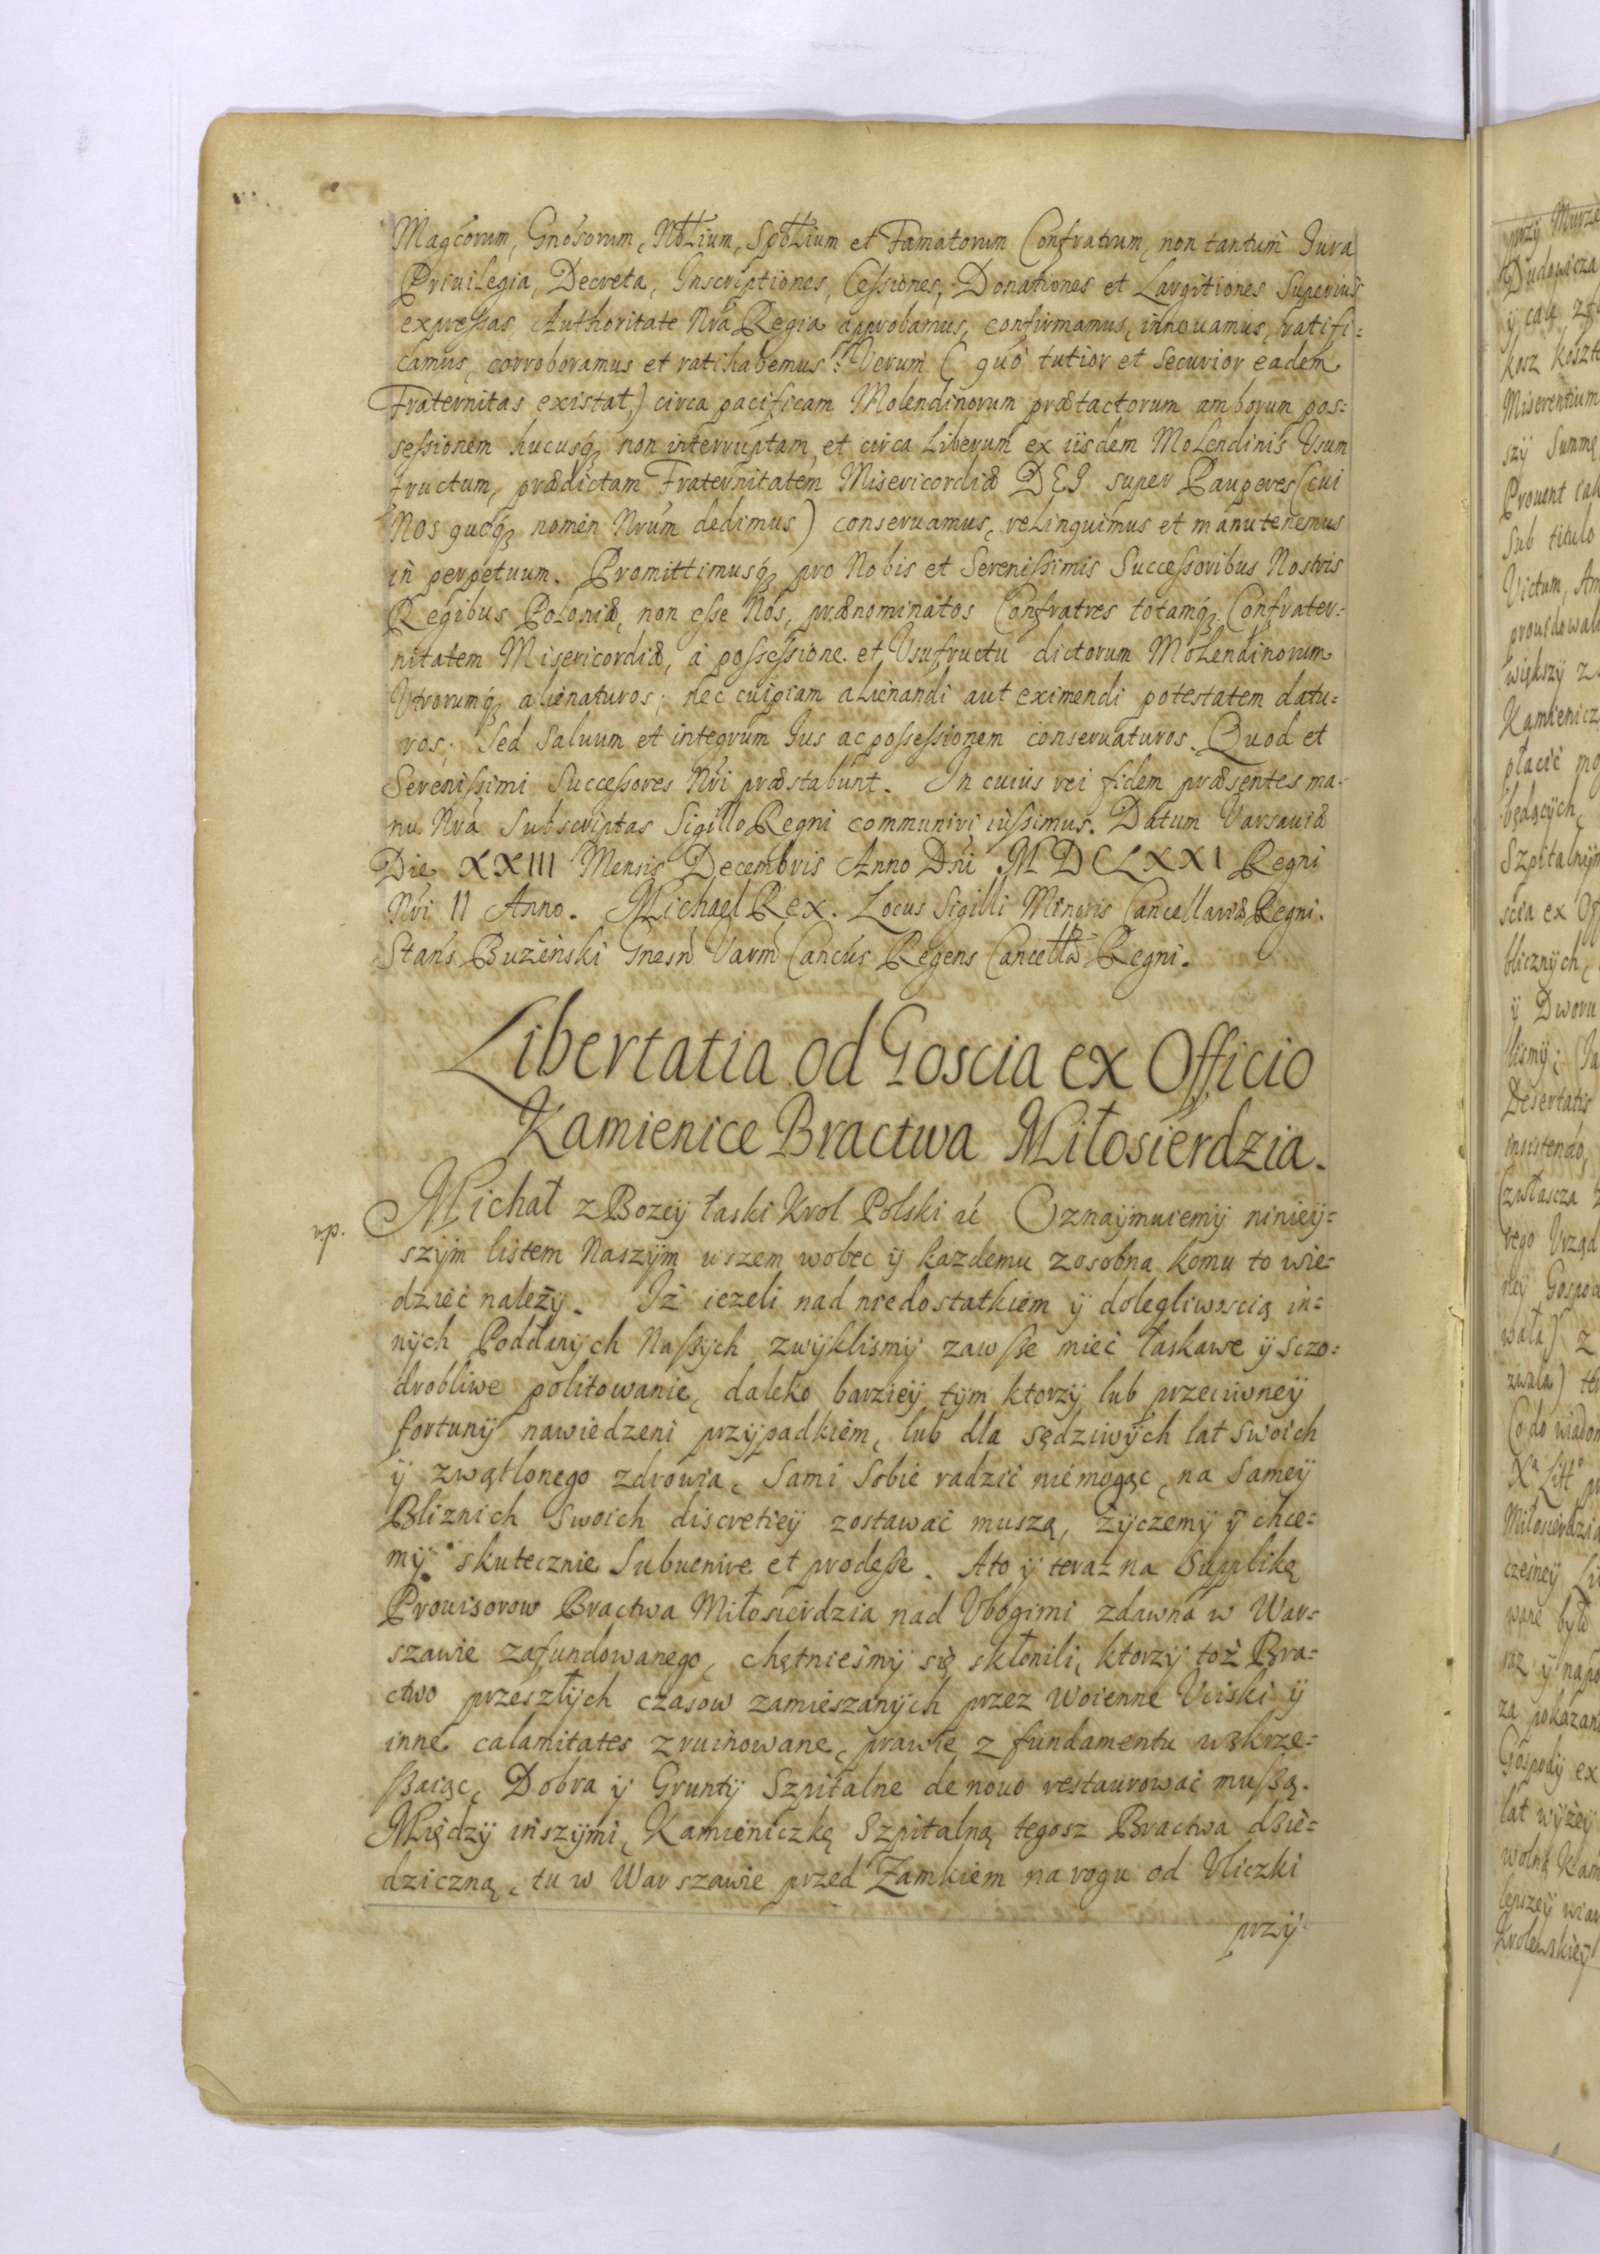 Magcorum, Gnosorum, Nobłium, Spbłium et Famatorum Confratrum, non tantum Iura
Priuilegia, Decreta, Inscriptiones, Cessiones, Donationes et Largitiones Superius
expressas, Authoritate Nra Regia approbamus, confirmamus, innouamus, ratifi-
camus, corroboramus et ratihabemus: Verum ( quo tutior et securior eadem
Fraternitas existat,) circa pacificam Molendinorum prætactorum amborum pos-
sessionem hucusq; non interruptam, et circa liberum ex iisdem Molendinis Usum
fructum, prædictam Fraternitatem Misericordiæ DEI super Pauperes (cui
Nos quoq; nomen Nrum dedimus) conseruamus, relinquimus et manutenemus
in perpetuum. Promittimusq; pro Nobis et Serenissimis Successoribus Nostris
Regibus Poloniæ, non esse Nos, prænominatos Confratres totamq; Confrater-
nitatem Misericordiæ, à possessione et Vsufructu dictorum Molendinorum
Vtrorumq; alienaturos; nec cuipiam alienandi aut eximendi potestatem datu-
ros; Sed Saluum et integrum Ius ac possessionem conseruaturos. Quod et
Serenissimi Successores Nri præstabunt. In cuius rei fidem præsentes ma-
nu Nra Subscriptas Sigillo Regni communiri iussimus. Datum Varsauiæ
Die XXIII Mensis Decembris Anno Dni MDCLXXI Regni
Nri II Anno. Michael Rex. Locus Sigilli Minoris Cancellariæ Regni.
Stans Buzenski Gnesn Varm Cancus Regens Cancellæ Regni.
Libertatia od Goscia ex Officio
Kamienice Bractwa Miłosierdzia.
rp.
Michał z Bozey łaski Krol Polski &c Oznaymuiemy niniey-
szym listem Naszym wszem wobec y kazdemu zosobna komu to wie-
dzieć należy. Iż iezeli nad niedostatkiem y dolegliwoscią in-
nych Poddanych Naszych zwyklismy zawsze mieć łaskawe y sczo-
drobliwe politowanie, daleko barziey tym ktorzy lub przeciwney
fortuny nawiedzeni przypadkiem, lub dla sędziwych lat swoich
y zwątlonego zdrowia, Sami Sobie radzić niemogąc, na Samey
Bliznich Swoich discretiey zostawać muszą, życzemy y chce-
my skutecznie Subuenire et prodesse. Ato y teraz na Supplikę
Prouisorow Bractwa Miłosierdzia nad Vbogimi zdawna w War-
szawie zafundowanego, chętnieśmy się skłonili, ktorzy toż Bra-
ctwo przeszłych czasow zamieszanych przez woienne Vciski y
inne calamitates zruinowane, prawie z fundamentu wskrze-
szaiąc, Dobra y Grunty Szpitalne de nouo restaurować muszą.
Między inszymi, Kamieniczkę Szpitalną tegosz Bractwa dzie-
dziczną, tu w Warszawie przed Zamkiem na rogu od Vliczki
przy